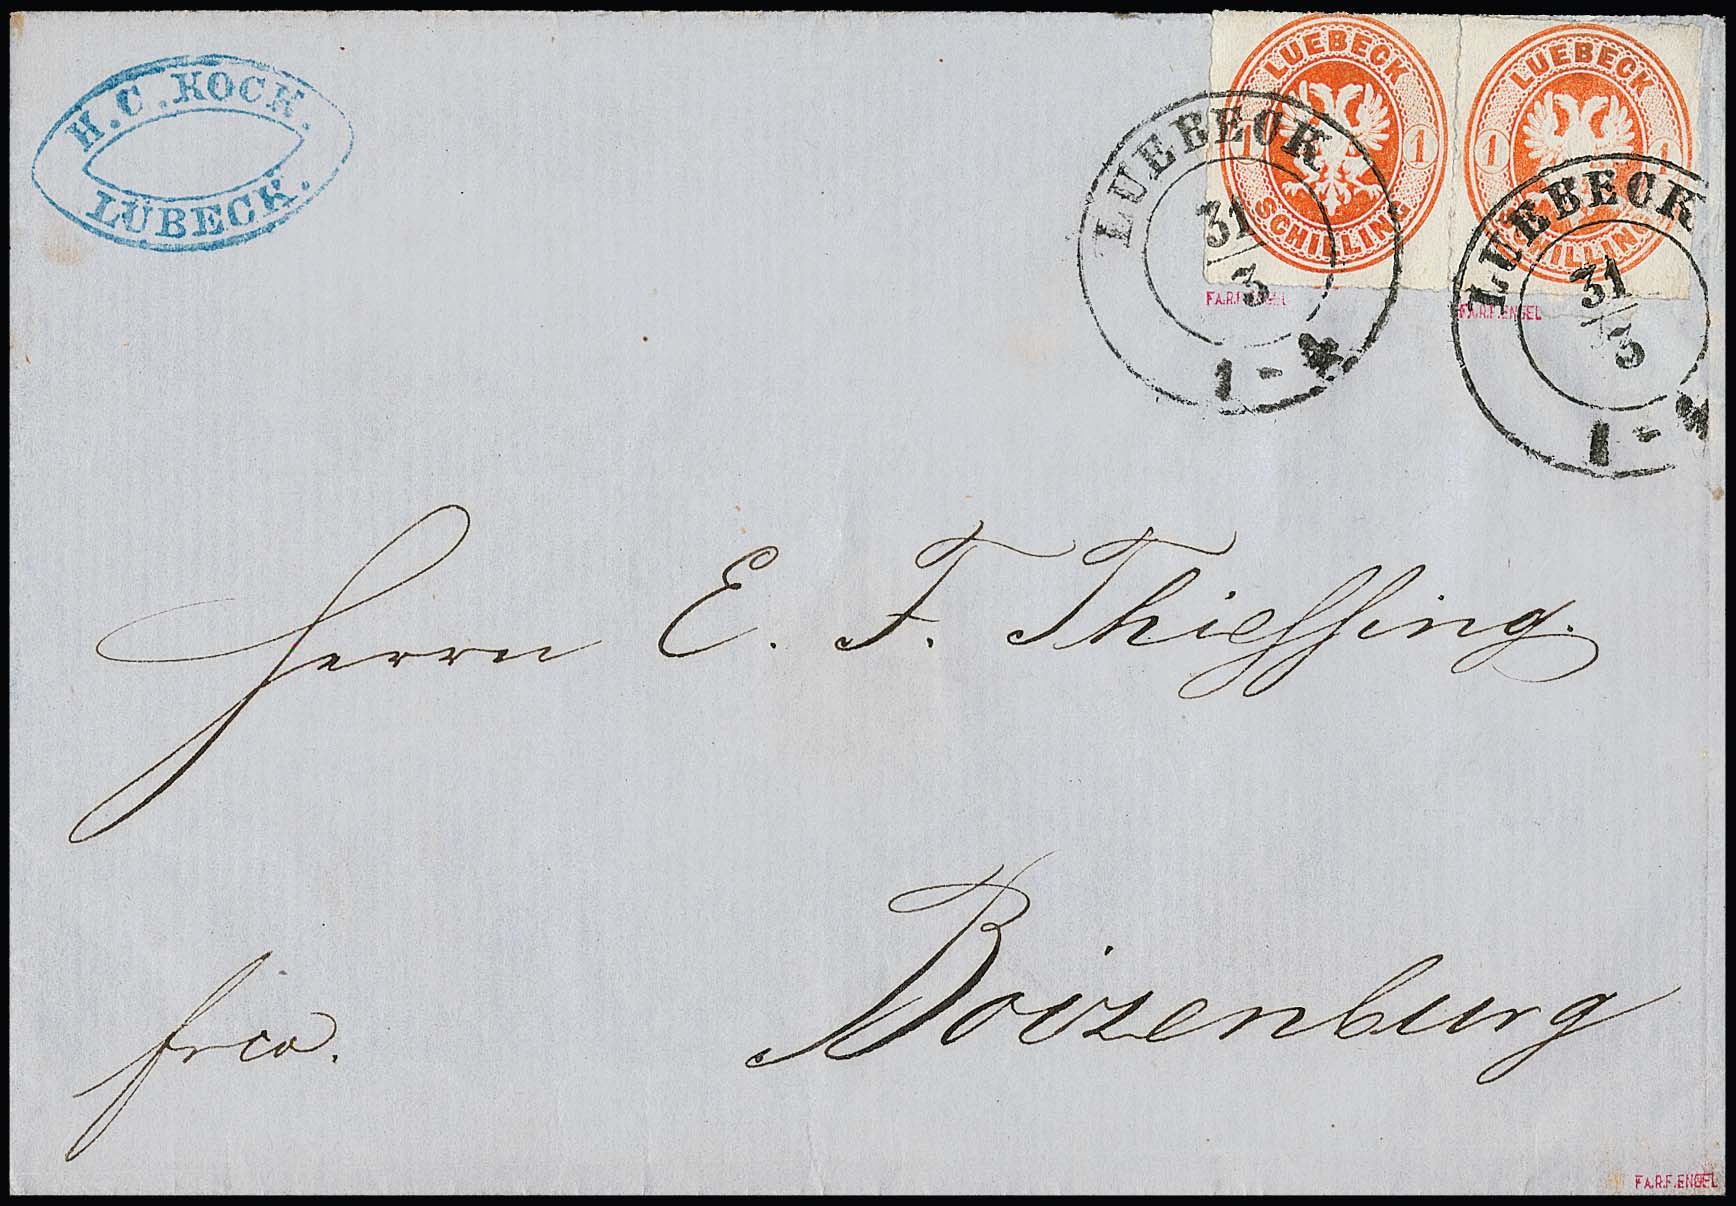 H. C. KOCK.
LÜBECK.
LUEBECK
1 1
SCHILLING
LUEBECK
1 1
SCHILLING
LUEBECK
31
3
1 - 4
LUEBECK
31
3
1 - 4
FA.R.F.ENGEL
FA.R.F.ENGEL
Herrn E. F. Thieſsing.
Boizenburg
frco.
FA.R.F.ENGEL